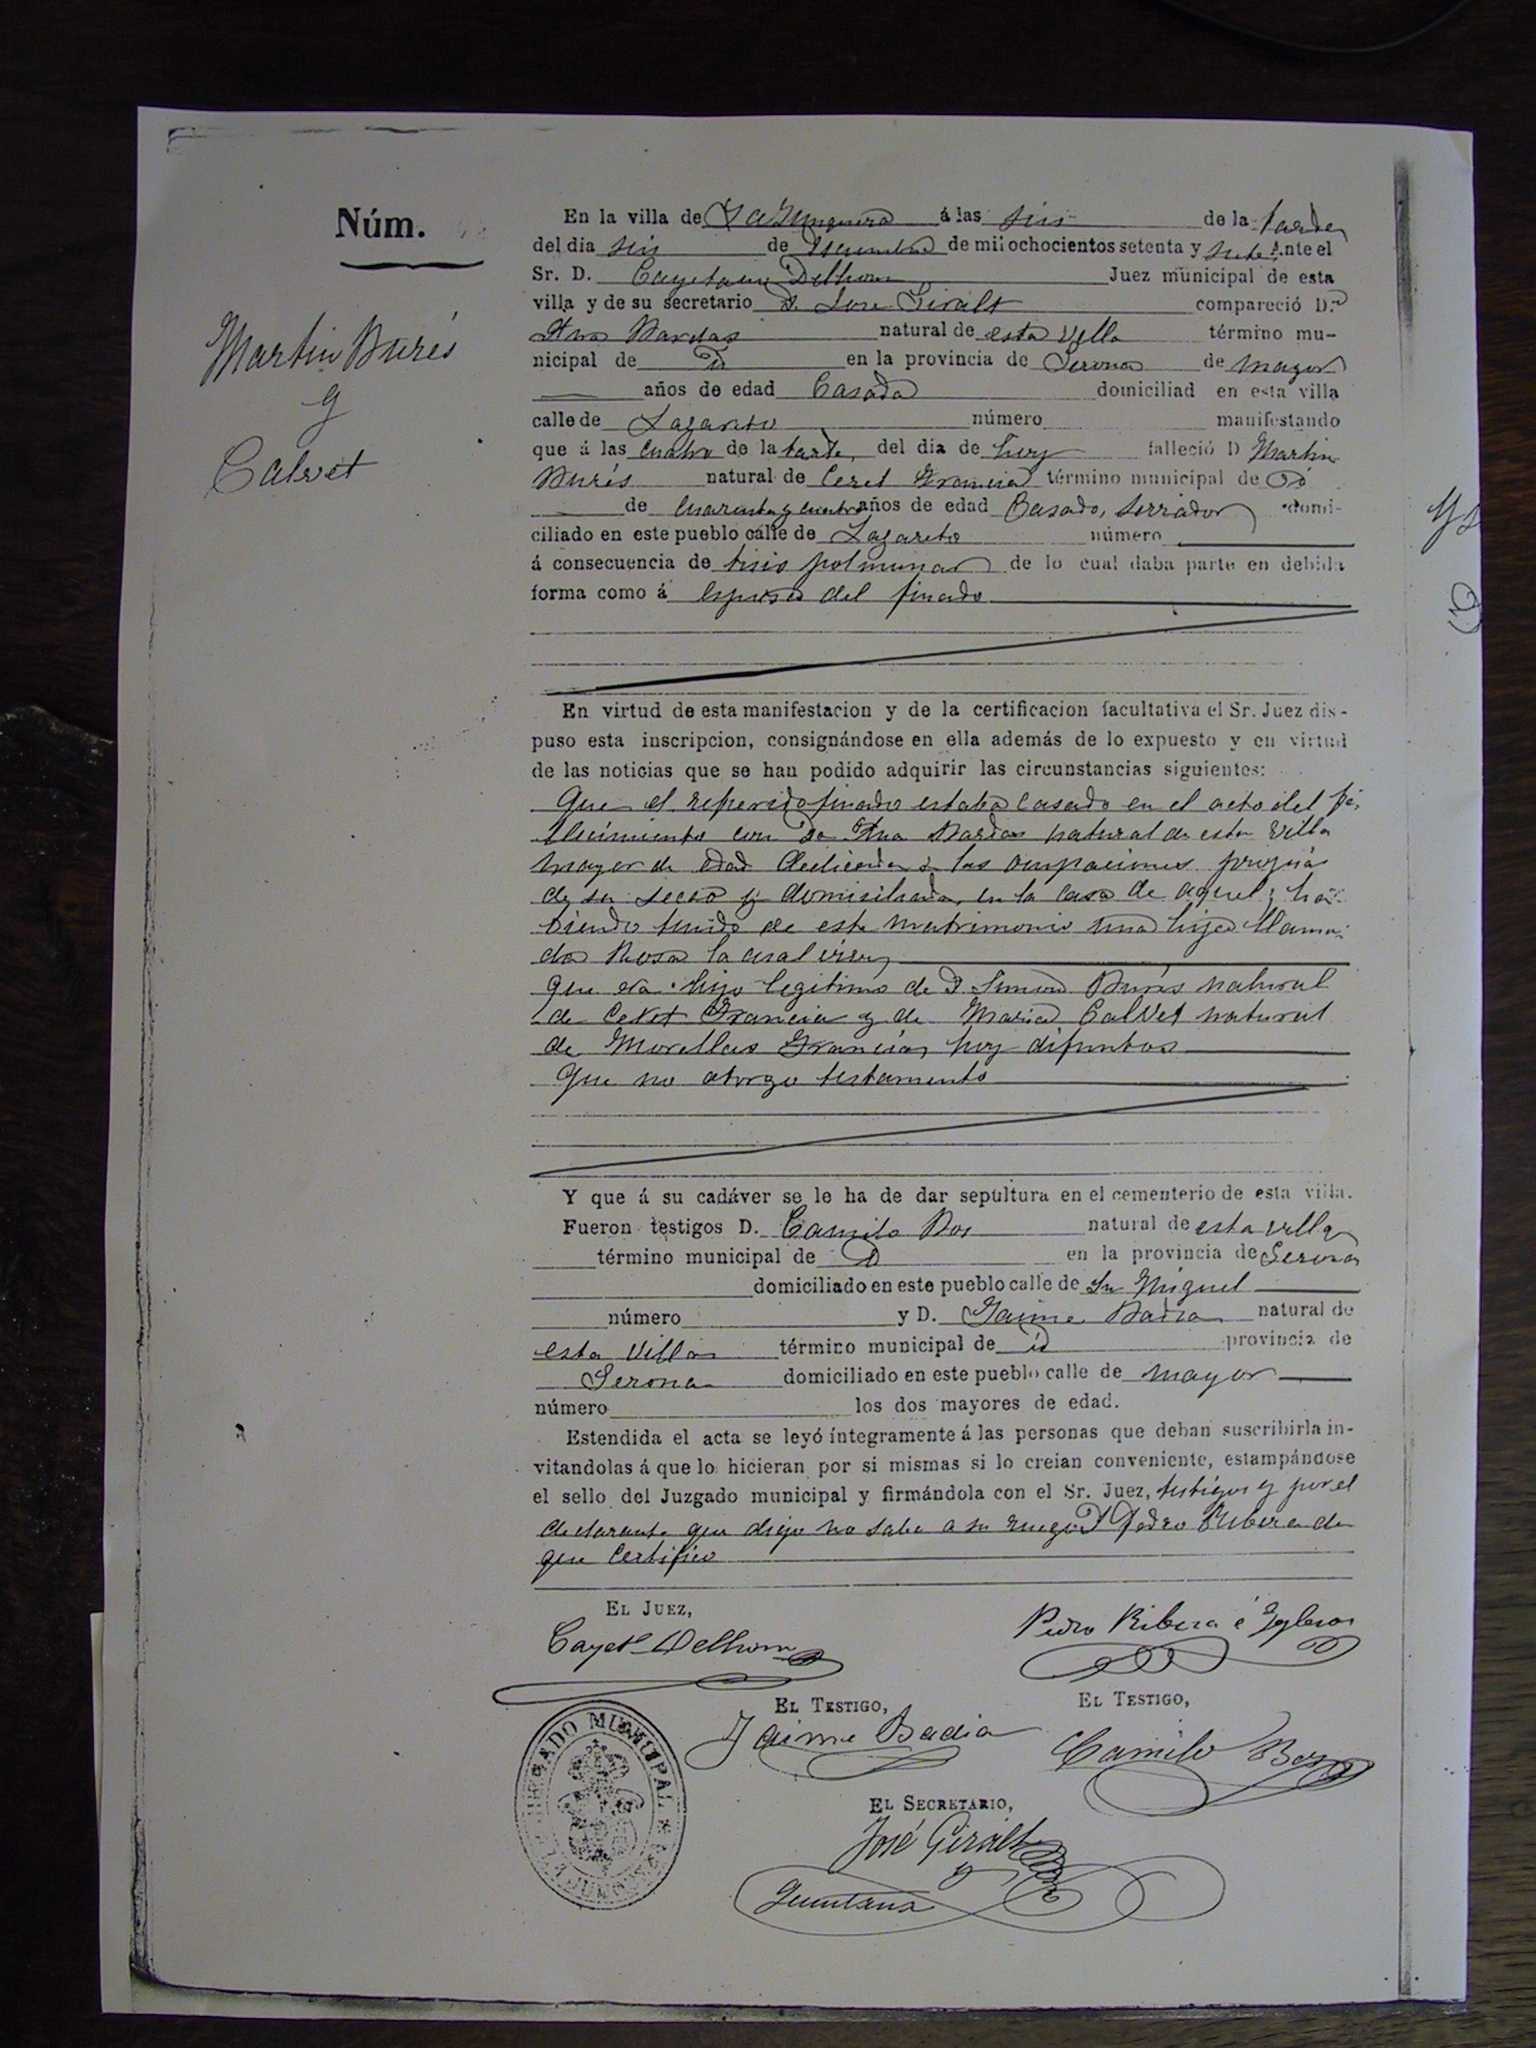 Núm.
Martin Burés
y
Calvet
En la villa de La Junquera á las seis de la tarde
del dia seis de Diciembre de mil ochocientos setenta y siete Ante el
Sr. D. Cayetano Delhom Juez municipal de esta
villa y de su secretario D. Jose Giralt compareció D.ª
Ana natural de esta villa término mu-
nicipal de id en la provincia de Gerona de mayor
años de edad Casada domiciliad en esta villa
calle de Lazareto número manifestando
que á las cuatro de la tarde, del dia de hoy falleció D Martin
Burés natural de Ceret Francia término municipal de id
de cuarenta y cuatro años de edad Casado, serrador domi-
ciliado en este pueblo calle de Lazareto número
á consecuencia de tisis polmunar de lo cual daba parte en debida
forma como á esposa del finado
En virtud de esta manifestacion y de la certificacion facultativa el Sr. Juez dis-
puso esta inscripcion, consignándose en ella además de lo expuesto y en virtud
de las noticias que se han podido adquirir las circunstancias siguientes:
Que el referido finado estaba casado en el acto del fa-
llecimiento con Da Ana natural de esta villa
mayor de edad dedicada a las ocupaciones propias
de su secso y domiciliada, en la casa de aquel; ha-
biendo tenido de este matrimonio una hija llama-
da Rosa la cual vive,
que era hijo legitimo de D. Simon Burés natural
de Ceret Francia y de Maria Calvet natural
de Morellas Francia, hoy difuntos
Que no otorgo testamento
Y que á su cadáver se le ha de dar sepultura en el cementerio de esta villa.
Fueron testigos D. Camilo Bos natural de esta villa
término municipal de id en la provincia de Gerona
domiciliado en este pueblo calle de Sn Miguel
número y D. Jaime Badia natural de
esta villa término municipal de id provincia de
Gerona domiciliado en este pueblo calle de mayor
número los dos mayores de edad.
Estendida el acta se leyó íntegramente á las personas que deban suscribirla in-
vitandolas á que lo hicieran por si mismas si lo creian conveniente, estampándose
el sello del Juzgado municipal y firmándola con el Sr. Juez, testigos y por el
declarante que dijo no sabe a su ruego D Pedro Ribera de
que certifico
EL JUEZ,
Cayet.º Delhom
Pedro Ribera é Yglesias
EL TESTIGO,
Jaime Badia
EL TESTIGO,
Camilo Bos
EL SECRETARIO,
José Giralt
y
Quintana
JUZGADO MUNICIPAL * LA JUNQUERA *